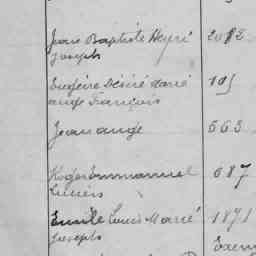 Jean Baptiste Henri 2082
Joseph
Eugène Désiré Marie 105
ange François
Jean ange 663
Roger Emmanuel 687
Lucien
Emile Louis Marie 1871
Joseph
Exem